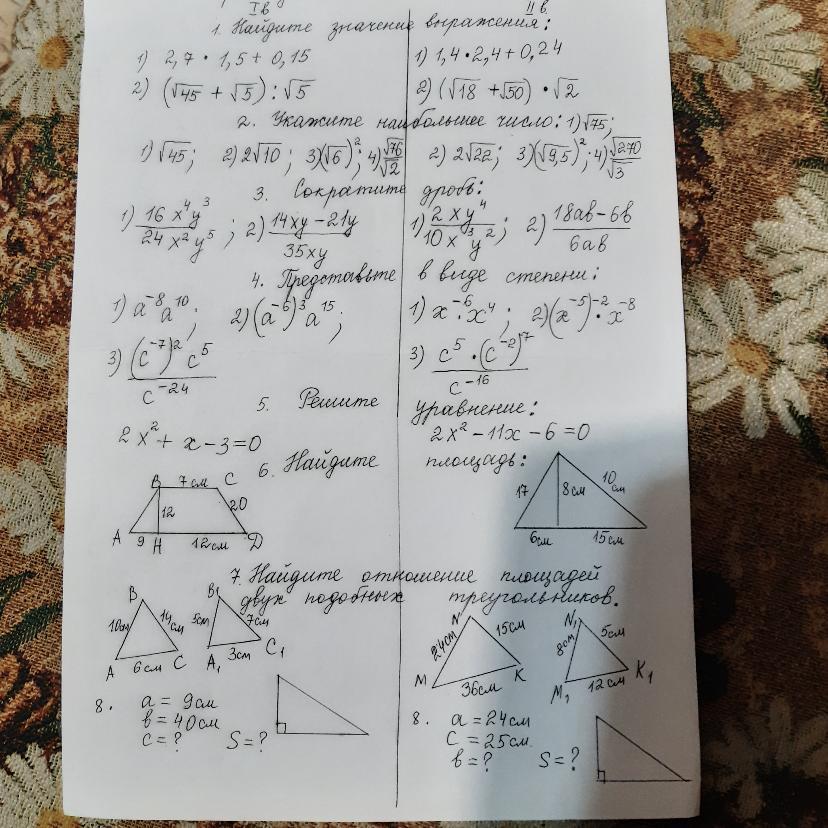 I в. II в.
1. Найдите значение выражения:
1) 2,7 · 1,5 + 0,15 1) 1,4 · 2,4 + 0,24
2) (√45 + √5) : √5 2) (√18 + √50) · √2
2. Укажите наибольшее число: 1) √75;
1) √45; 2) 2√10; 3) (√6)²; 4) √76/√2 2) 2√22; 3) (√9,5)²; 4) √270/√3
3. Сократите дробь:
1) 16x⁴y³/24x²y⁵; 2) 14xy − 21y/35xy 1) 2xy⁴/10x³y²; 2) 18ав − 6в/6ав
4. Представьте в виде степени:
1) a⁻⁸a¹⁰; 2) (a⁻⁶)³a¹⁵; 1) x⁻⁶·x⁴; 2) (x⁻⁵)⁻²·x⁻⁸
3) (c⁻⁷)²c⁵/c⁻²⁴ 3) c⁵·(c⁻²)⁷/c⁻¹⁶
5. Решите уравнение:
2x² + x − 3 = 0 2x² − 11x − 6 = 0
6. Найдите площадь:
B 7см C 17 8см 10см
12 20
A 9 H 12см D 6см 15см
7. Найдите отношение площадей
двух подобных треугольников.
B 10см 14см B₁ 5см 7см N 24см 15см N₁ 8см 5см
A 6см C A₁ 3см C₁ M 36см K M₁ 12см K₁
8. a = 9см 8. a = 24см
в = 40см c = 25см
c = ? S = ? в = ? S = ?